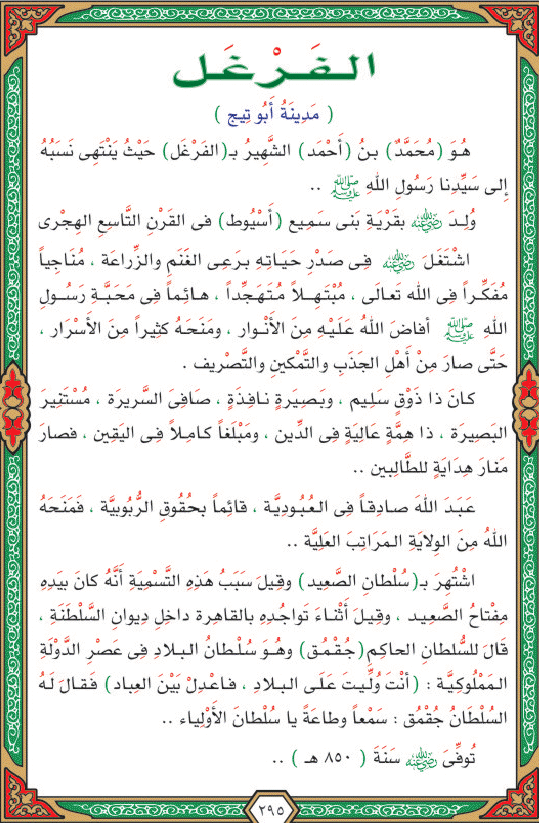 الفَرْغَل
( مَدِينَةُ أَبُو تِيج )
هُوَ (مُحَمَّدٌ) بنُ (أَحْمَد) الشَّهِيرُ بـ(الفَرْغَل) حَيْثُ يَنْتَهِى نَسَبُهُ
إلى سَيِّدِنا رَسُولِ اللهِ ﷺ ..
وُلِدَ رضي الله عنه بقَرْيَةِ بَنى سَمِيع (أَسْيُوط) فى القَرْنِ التَّاسِعِ الهِجْرِى
اشْتَغَلَ رضي الله عنه فِى صَدْرِ حَيَاتِهِ بِرَعِى الغَنَمِ والزِّراعَة ، مُنَاجِياً
مُفَكِّراً فِى اللهِ تَعالَى ، مُبْتَهِلاً مُتَهَجِّداً ، هائِماً فِى مَحَبَّةِ رَسُولِ
اللهِ ﷺ أفاضَ اللهُ عَلَيْهِ مِنَ الأَنْوارِ ، ومَنَحَهُ كَثِيراً مِنَ الأَسْرَارِ ،
حَتَّى صارَ مِنْ أَهْلِ الجَذَبِ والتَّمْكينِ والتَّصْرِيف .
كانَ ذا ذَوْقٍ سَلِيم ، وبَصِيرَةٍ نافِذَةٍ ، صَافِىَ السَّرِيرَة ، مُسْتَنِيرَ
البَصِيرَة ، ذا هِمَّةٍ عالِيَةٍ فِى الدِّين ، ومَبْلَغاً كامِلاً فِى اليَقِين ، فصارَ
مَنارَ هِدَايَةٍ للطَّالِبين ..
عَبَدَ اللهَ صادِقاً فِى العُبُودِيَّة ، قائِماً بحُقُوقِ الرُّبُوبِيَّة ، فَمَنَحَهُ
اللهُ مِنَ الوِلايَةِ المَرَاتِبَ العَلِيَّة ..
اشْتُهِرَ بـ(سُلْطانِ الصَّعِيد) وقِيلَ سَبَبُ هَذِهِ التَّسْمِيَةِ أَنَّهُ كانَ بيَدِهِ
مِفْتاحُ الصَّعِيد ، وقِيلَ أَثْناءَ تَواجُدِهِ بالقاهِرة داخِلِ دِيوانِ السَّلْطَنَةِ ،
قَالَ للسُّلْطانِ الحاكِمِ (جُقْمُق) وهُوَ سُلْطانُ البلادِ فِى عَصْرِ الدَّوْلَةِ
المَمْلُوكِيَّة : (أنْتَ وُلِّيتَ عَلَى البلادِ ، فاعْدِلْ بَيْنَ العِباد) فَقالَ لَهُ
السُّلْطَانُ جُقْمُق : سَمْعاً وطاعَةً يا سُلْطانَ الأَوْلِياء ..
تُوفِّىَ رضي الله عنه سَنَةَ ( ٨٥٠ هـ ) ..
٢٩٥